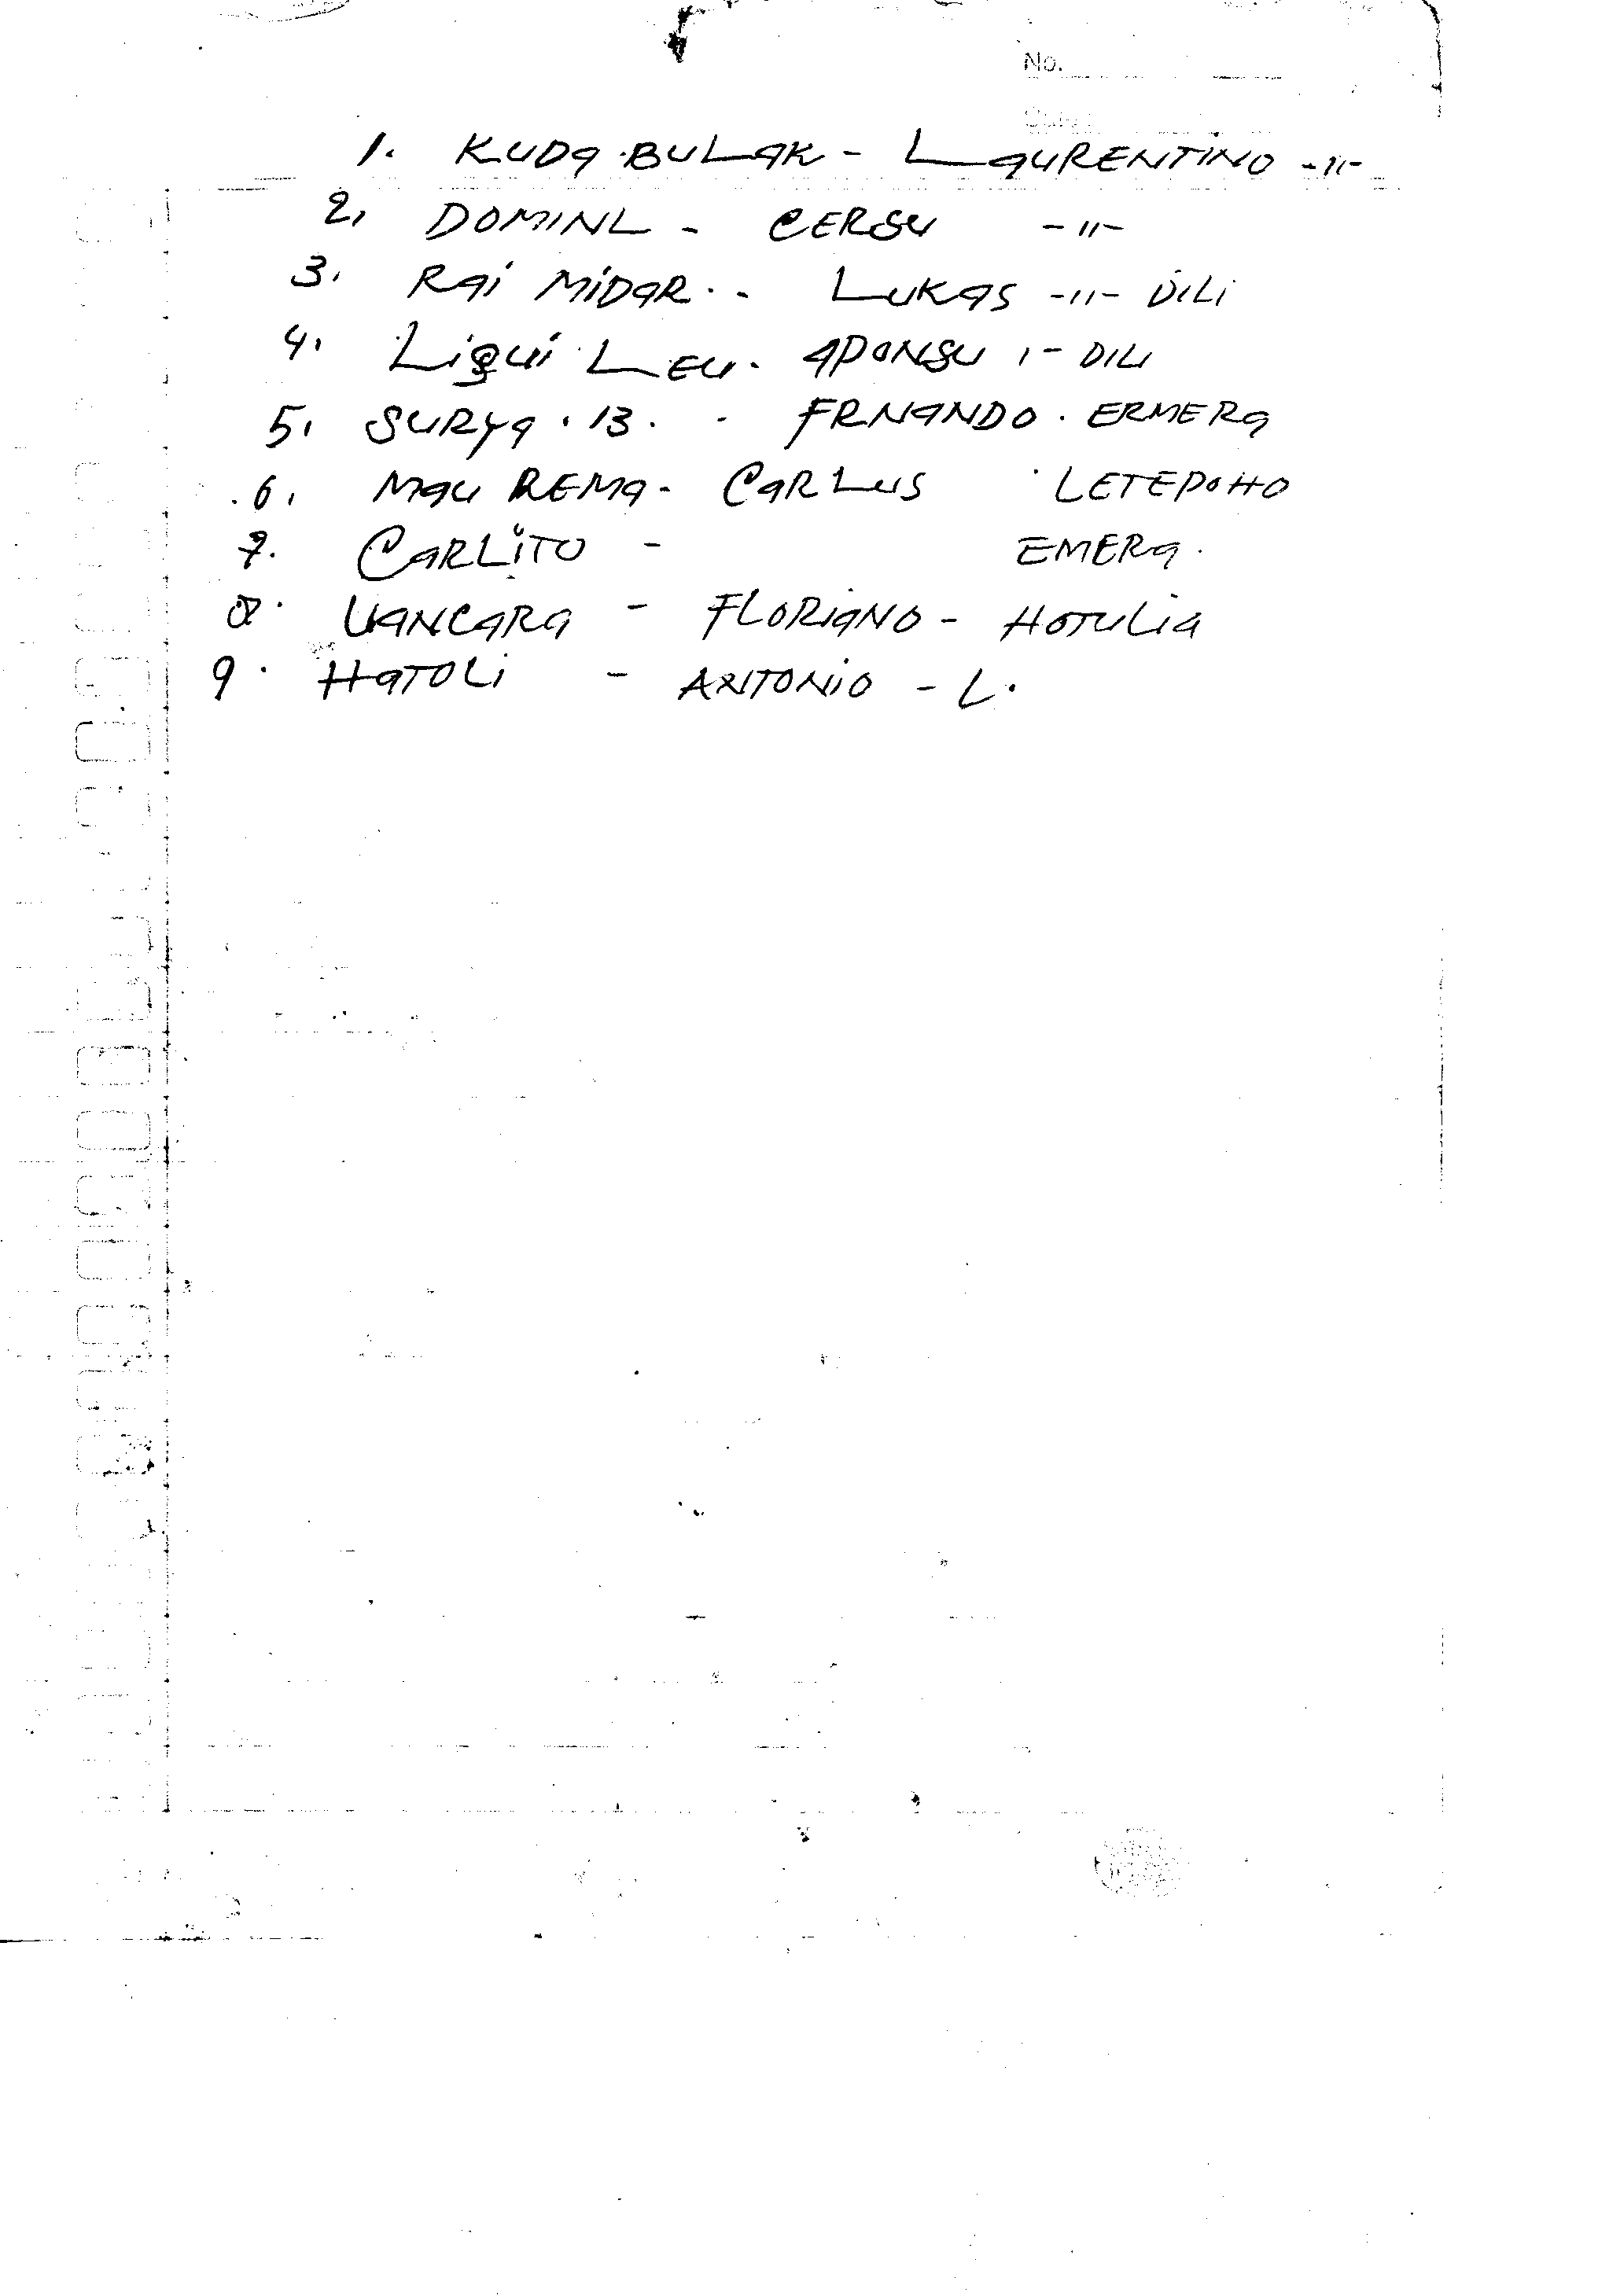 No.
1. KUDA BULAK - LAURENTINO -"-
2. DOMINL - CERSU -"-
3. RAI MIDAR. - LUKAS -"- DILI
4. LIQUI LEU - APONSU 1- DILI
5. SURYA . 13. - FRNANDO . ERMERA
6. MAU REMA - CARLUS LETEPOHO
7. CARLITO - EMERA.
8. VANCARA - FLORIANO - HOTULIA
9. HATOLI - ANTONIO - L.